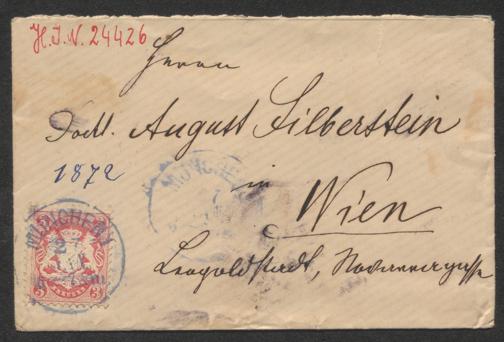 H.I.N. 24426
Herrn
Doct. August Silberstein
1872
MÜNCHEN
in
Wien
MÜNCHEN I
Leopoldstadt,
3 3